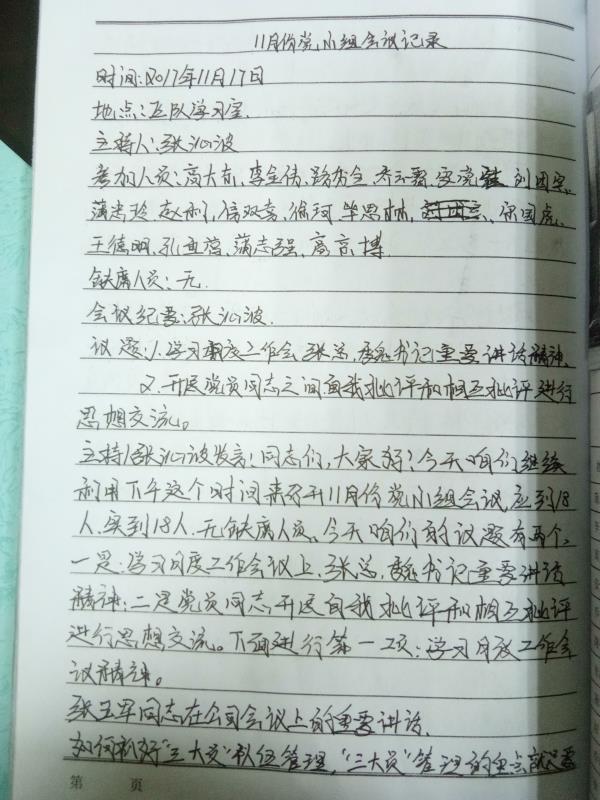 11月份党小组会议记录
时间:2017年11月17日
地点:三队学习室.
主持人:张沁波
参加人员:高大东、李金伟、路方全、乔云霄、
蒲忠玲、赵利、信双喜、徐珂、毕思林、宋国虎、
王德明、孔垂营、蒲志强、高京博.
缺席人员:无.
会议纪要:张沁波.
议题:1.学习月度工作会张总、魏书记重要讲话精神、
2.开展党员同志之间自我批评和相互批评进行
思想交流。
主持人张沁波发言:同志们,大家好!今天咱们继续
利用下午这个时间来召开11月份党小组会议,应到18
人,实到18人.无缺席人员。今天咱们的议题有两个,
一是:学习月度工作会议上,张总,魏书记重要讲话
精神;二是党员同志开展自我批评和相互批评
进行思想交流。下面进行第一项:学习月度工作会
议精神。
张玉军同志在公司会议上的重要讲话.
如何抓好"三大员"队伍管理,"三大员"管理的重点就是要
第 页